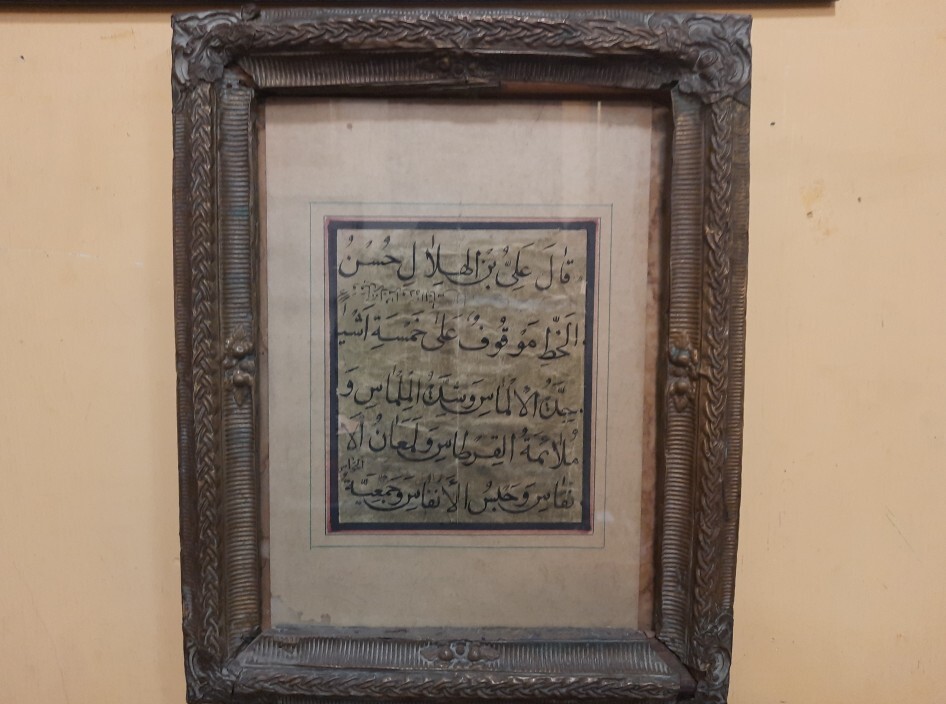 قَالَ عَلِيُّ بْنُ الهِلَالِ حُسْنُ
الْخَطِّ مَوْقُوفٌ عَلٰى خَمْسَةِ اَشْيَاءٍ
حِدَّتُ الْاَلْمَاسِ وَسُدَّتُ الْمِلْمَاسِ وَ
مُلَائمَةُ القِرْطَاسِ وَلَمَعَانُ الَا
نْقَاسِ وَحَبْسُ الْأَنْفَاسِ وَجَمْعِيَّةُ
الحَوَاسِ